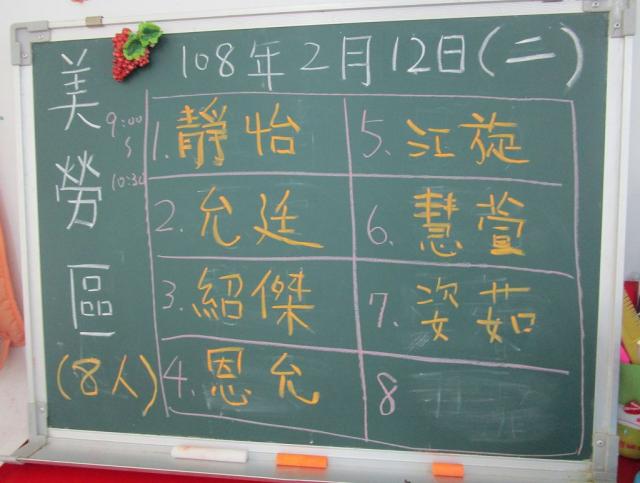 108年2月12日(二)
美勞區
(8人)
9:00
~
10:30
1. 靜怡
2. 允廷
3. 紹傑
4. 恩允
5. 江旋
6. 慧萱
7. 姿茹
8